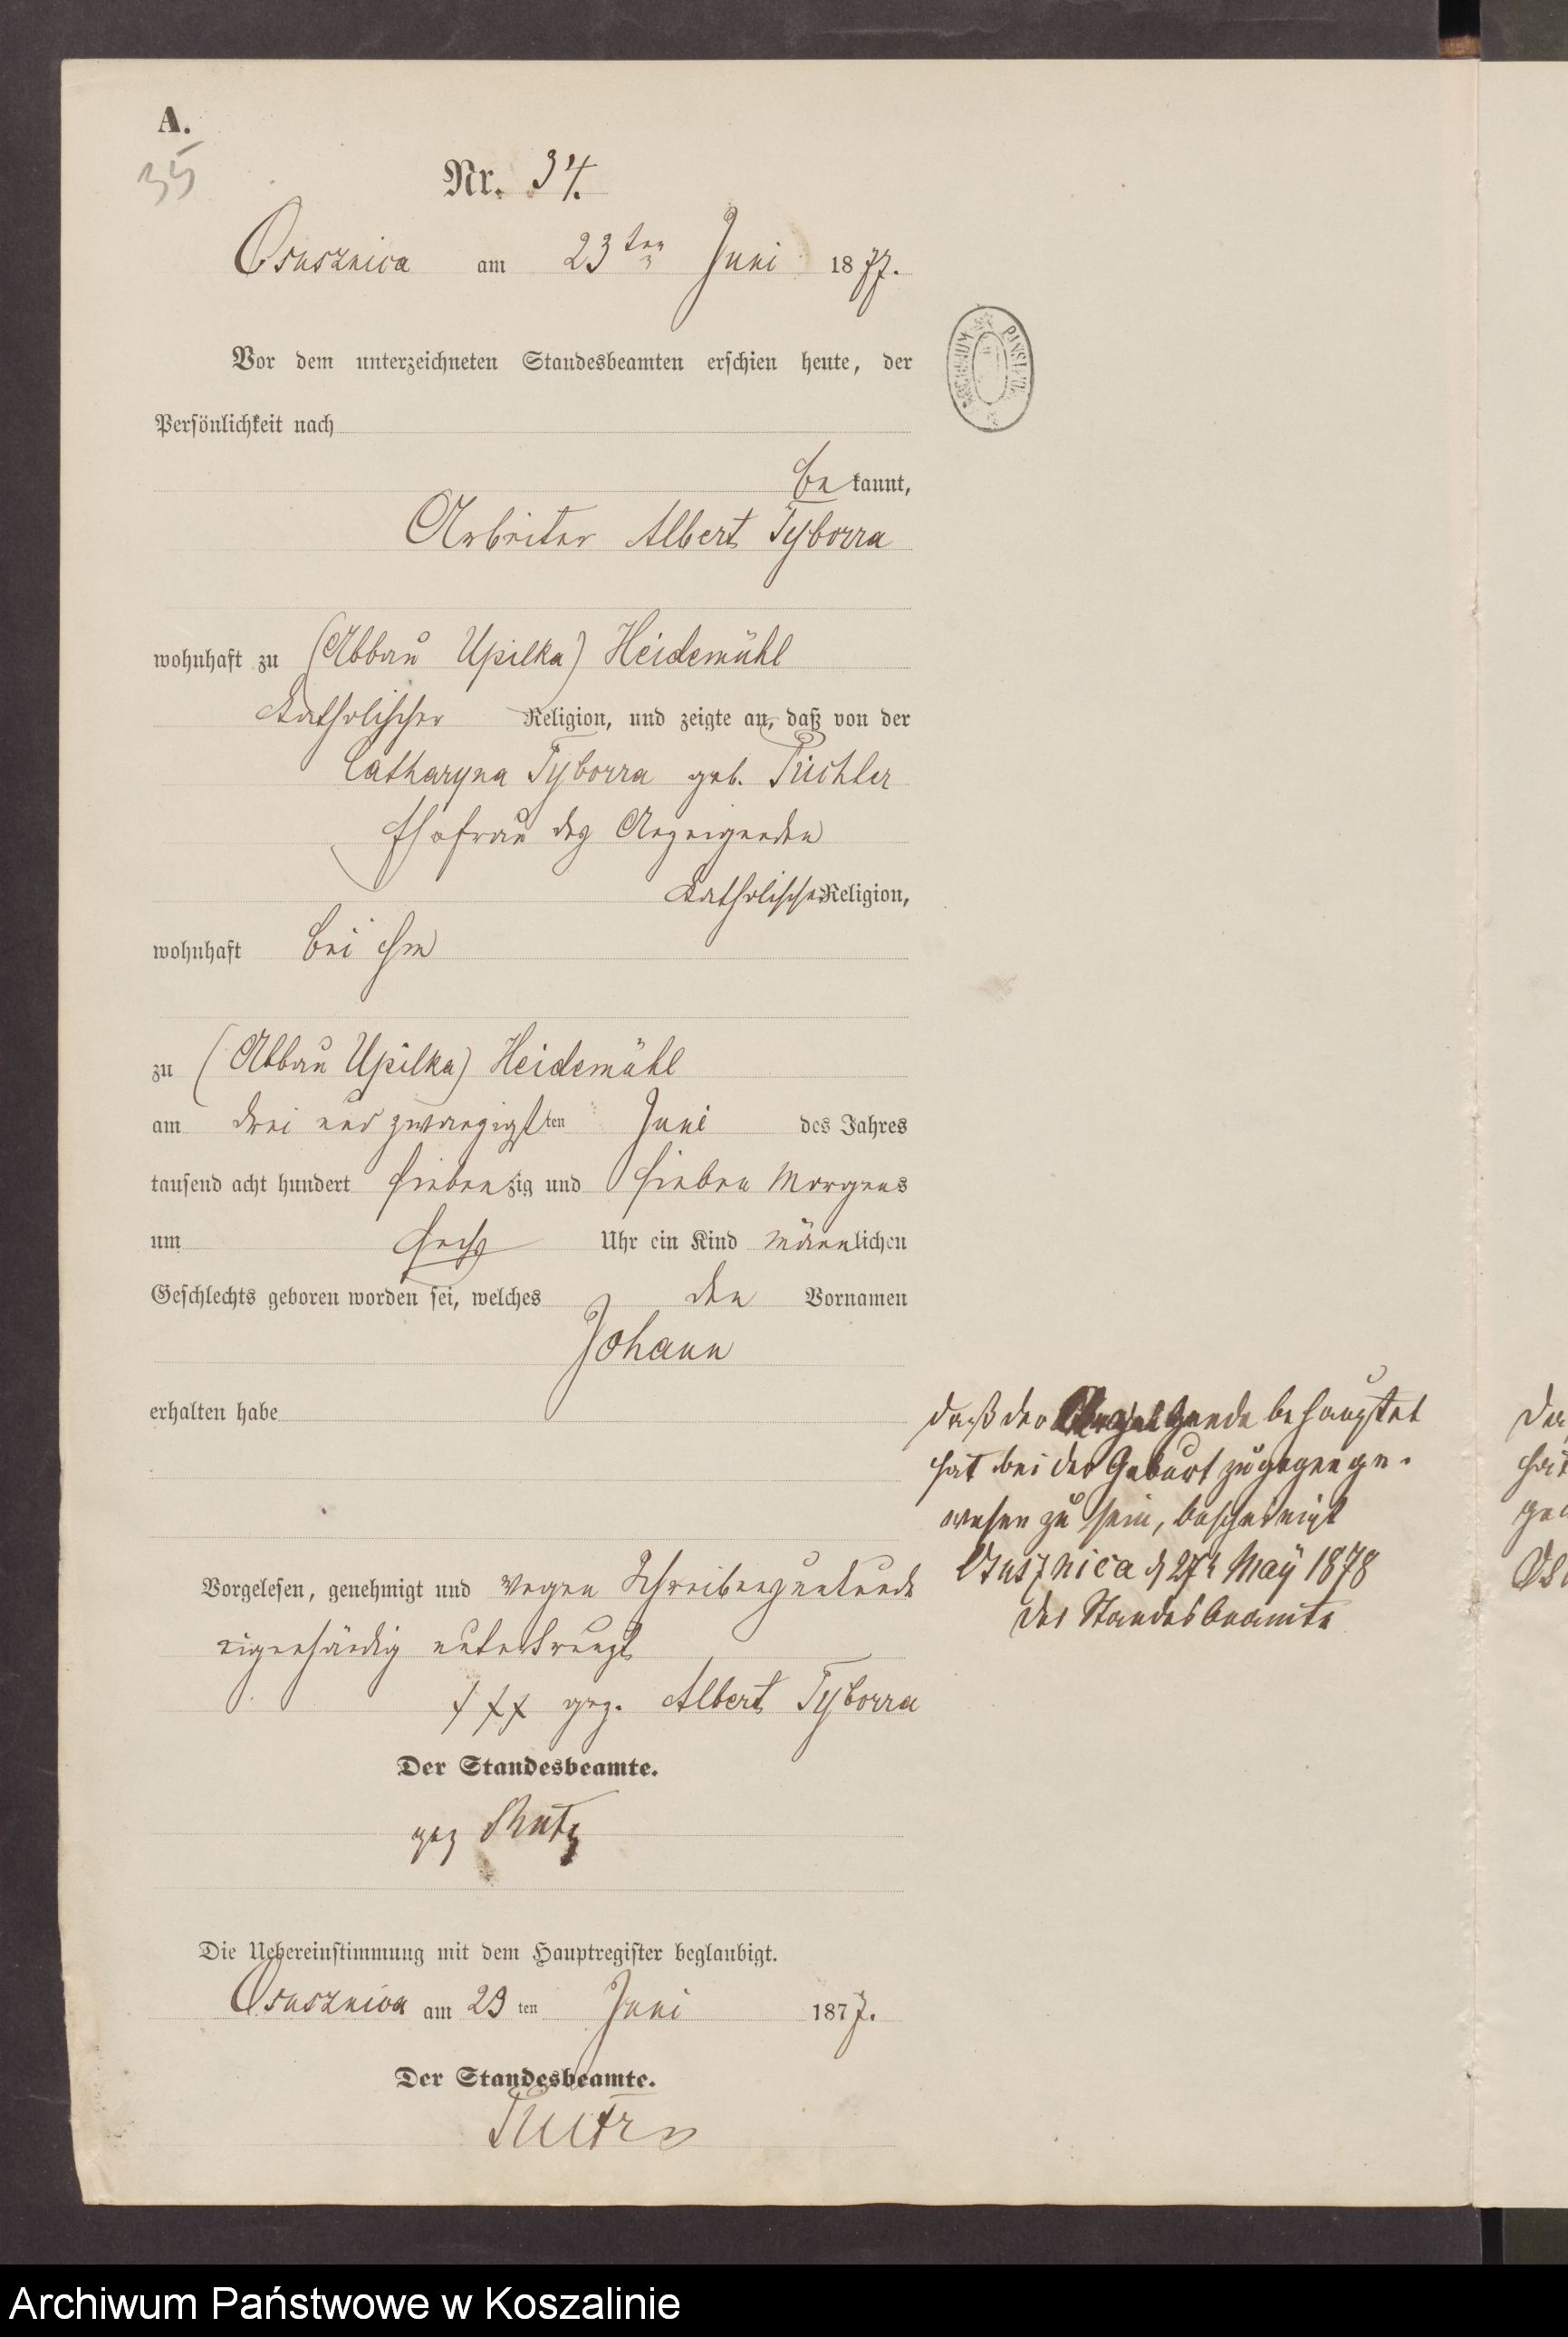 A.
35
Nr. 34.
Osusznica am 23ten Juni 1877.
Vor dem unterzeichneten Standesbeamten erschien heute, der
Persönlichkeit nach
bekannt,
Arbeiter Albert Tyborra
wohnhaft zu (Abbau Upilka) Heidemühl
katholischer Religion, und zeigte an, daß von der
Catharyna Tyborra geb. Tüchler
Ehefrau des Anzeigenden
katholischer Religion,
wohnhaft bei ihm
zu (Abbau Upilka) Heidemühl
am drei und zwanzigsten Juni des Jahres
tausend acht hundert siebenzig und sieben Morgens
um sechs Uhr ein Kind männlichen
Geschlechts geboren worden sei, welches den Vornamen
Johann
erhalten habe
daß der Anzeigende behauptet
hat bei der Geburt zugegen ge-
wesen zu sein, bescheinigt
Osusznica d 27t May 1878
Der Standesbeamte
Vorgelesen, genehmigt und wegen Schreibensunkunde
eigenhändig unterkreuzt
xxx gez. Albert Tyborra
Der Standesbeamte.
gez
Die Uebereinstimmung mit dem Hauptregister beglaubigt.
Osusznica am 23 ten Juni 1877.
Der Standesbeamte.
Archiwum Państwowe w Koszalinie